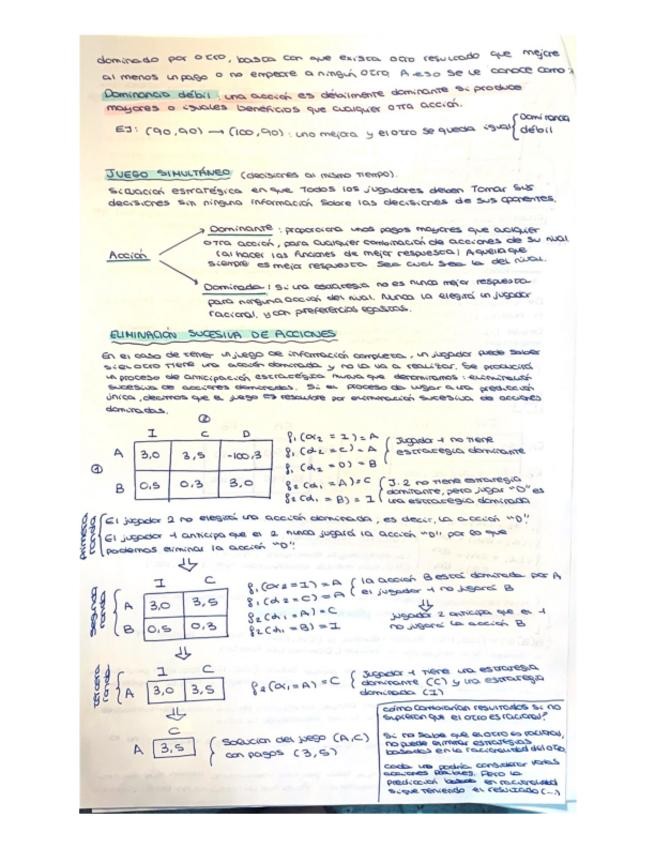 dominado por otro, basta con que exista otro resultado que mejore
al menos un pago o no empeore a ningún otro. A eso se le conoce como:
Dominancia débil: una acción es débilmente dominante si produce
mayores o iguales beneficios que cualquier otra acción.
EJ: (90,90) → (100,90): uno mejora y el otro se queda igual { Dominancia
débil
JUEGO SIMULTÁNEO (decisiones al mismo tiempo).
Situación estratégica en que todos los jugadores deben tomar sus
decisiones sin ninguna información sobre las decisiones de sus oponentes.
Acción
Dominante: proporciona unos pagos mayores que cualquier
otra acción, para cualquier combinación de acciones de su rival
(al hacer las funciones de mejor respuesta) Aquella que
siempre es mejor respuesta sea cual sea la del rival.
Dominada: Si una estrategia no es nunca mejor respuesta
para ninguna acción del rival. Nunca la elegirá un jugador
racional, y con preferencias egoístas.
ELIMINACIÓN SUCESIVA DE ACCIONES
En el caso de tener un juego de información completa, un jugador puede saber
si el otro tiene una acción dominada y no la va a realizar. Se producirá
un proceso de anticipación estratégica mutua que denominamos: eliminación
sucesiva de acciones dominadas. Si el proceso da lugar a una predicción
única, decimos que el juego es resoluble por eliminación sucesiva de acciones
dominadas.
②
I C D
① A 3,0 3,5 -100,3
B 0,5 0,3 3,0
f1 (α2 = I) = A
f1 (α2 = C) = A
f1 (α2 = D) = B
{ Jugador 1 no tiene
estrategia dominante
f2 (α1 = A) = C
f2 (α1 = B) = I
{ J. 2 no tiene estrategia
dominante, pero jugar "D" es
una estrategia dominada
primera ronda
{ El jugador 2 no elegirá una acción dominada, es decir, la acción "D".
El jugador 1 anticipa que el 2 nunca jugará la acción "D", por lo que
podemos eliminar la acción "D".
segunda ronda
I C
A 3,0 3,5
B 0,5 0,3
f1 (α2 = I) = A
f1 (α2 = C) = A
f2 (α1 = A) = C
f2 (α1 = B) = I
{ la acción B está dominada por A
el jugador 1 no jugará B
jugador 2 anticipa que el 1
no jugará la acción B
tercera ronda
I C
A 3,0 3,5
f2 (α1 = A) = C { Jugador 1 tiene una estrategia
dominante (C) y una estrategia
dominada (I)
C
A 3,5
{ Solución del juego (A,C)
con pagos (3,5)
¿cómo cambiarían resultados si no
supieran que el otro es racional?
Si no sabe que el otro es racional,
no puede eliminar estrategias
basadas en la racionalidad del otro.
Cada uno podría considerar varias
acciones posibles. Pero la
predicción basada en racionalidad
sigue teniendo el resultado (...)